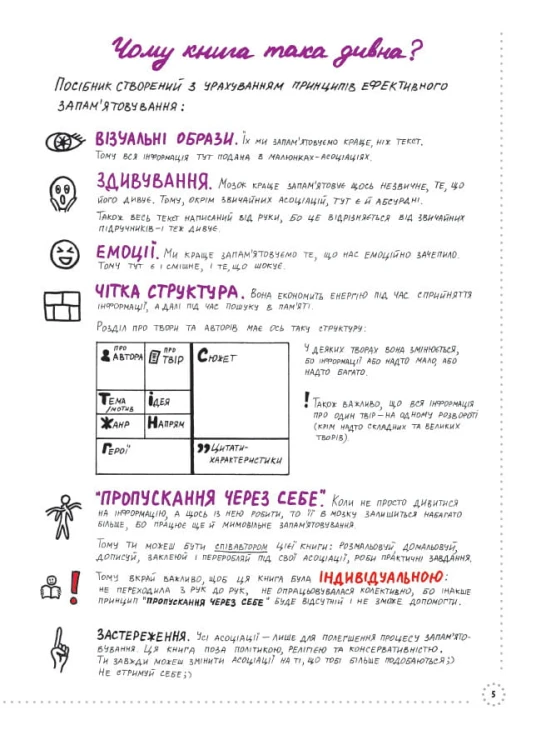 Чому книга така дивна?
Посібник створений з урахуванням принципів ефективного
запам'ятовування:
ВІЗУАЛЬНІ ОБРАЗИ. Їх ми запам'ятовуємо краще, ніж текст.
Тому вся інформація тут подана в малюнках-асоціаціях.
ЗДИВУВАННЯ. Мозок краще запам'ятовує щось незвичне, те, що
його дивує. Тому, окрім звичайних асоціацій, тут є й абсурдні.
Також весь текст написаний від руки, бо це відрізняється від звичайних
підручників – і теж дивує.
ЕМОЦІЇ. Ми краще запам'ятовуємо те, що нас емоційно зачепило.
Тому тут є і смішне, і те, що шокує.
ЧІТКА СТРУКТУРА. Вона економить енергію під час сприйняття
інформації, а далі під час пошуку в пам'яті.
Розділ про твори та авторів має ось таку структуру:
про автора
про твір
Сюжет
Тема/мотив
Ідея
Жанр
Напрям
Герої
Цитати-
характеристики
У деяких творах вона змінюється,
бо інформації або надто мало, або
надто багато.
! Також важливо, що вся інформація
про один твір – на одному розвороті
(крім надто складних та великих
творів).
"ПРОПУСКАННЯ ЧЕРЕЗ СЕБЕ". Коли не просто дивитися
на інформацію, а щось із нею робити, то її в мозку залишиться набагато
більше, бо працює ще й мимовільне запам'ятовування.
Тому ти можеш бути співавтором цієї книги: розмальовуй, домальовуй,
дописуй, заклеюй і переробляй під свої асоціації, роби практичні завдання.
! Тому вкрай важливо, щоб ця книга була ІНДИВІДУАЛЬНОЮ:
не переходила з рук до рук, не опрацьовувалася колективно, бо інакше
принцип "пропускання через себе" буде відсутній і не зможе допомогти.
ЗАСТЕРЕЖЕННЯ. Усі асоціації – лише для полегшення процесу запам'ято-
вування. Ця книга поза політикою, релігією та консервативністю.
Ти завжди можеш змінити асоціації на ті, що тобі більше подобаються;)
Не стримуй себе;)
5